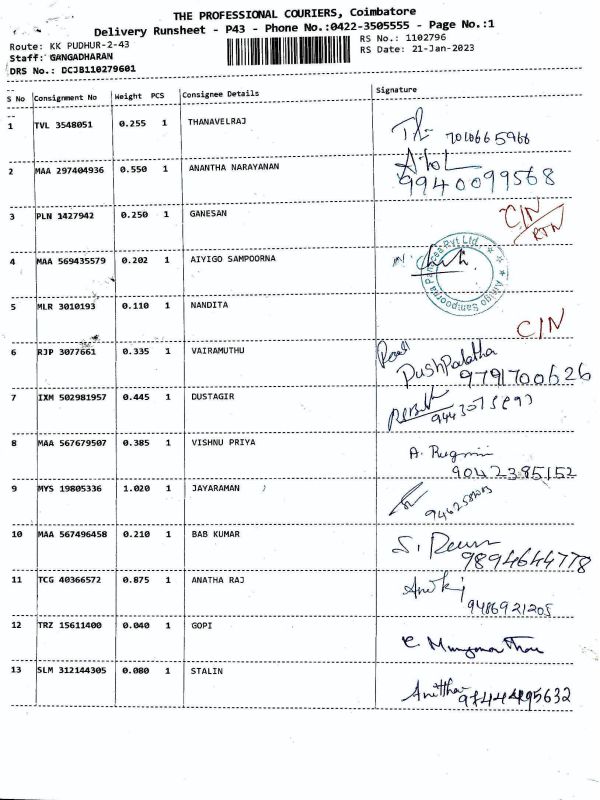 THE PROFESSIONAL COURIERS, Coimbatore
Delivery Runsheet - P43 - Phone No.:0422-3505555 - Page No.:1
Route: KK PUDHUR-2-43 RS No.: 1102796
Staff: GANGADHARAN RS Date: 21-Jan-2023
DRS No.: DCJB110279601
S No Consignment No Weight PCS Consignee Details Signature
1 TVL 3548051 0.255 1 THANAVELRAJ 7010665966
2 MAA 297404936 0.550 1 ANANTHA NARAYANAN
9940099568
3 PLN 1427942 0.250 1 GANESAN C/N
RTN
4 MAA 569435579 0.202 1 AIYIGO SAMPOORNA
Aiyigo Sampoorna Panacea Pvt Ltd.
5 MLR 3010193 0.110 1 NANDITA C/N
6 RJP 3077661 0.335 1 VAIRAMUTHU PushPalatha
9791700626
7 IXM 502981957 0.445 1 DUSTAGIR
8 MAA 567679507 0.385 1 VISHNU PRIYA
9042385152
9 MYS 19805336 1.020 1 JAYARAMAN
10 MAA 567496458 0.210 1 BAB KUMAR
9894644778
11 TCG 40366572 0.875 1 ANATHA RAJ
9486921205
12 TRZ 15611400 0.040 1 GOPI
13 SLM 312144305 0.080 1 STALIN